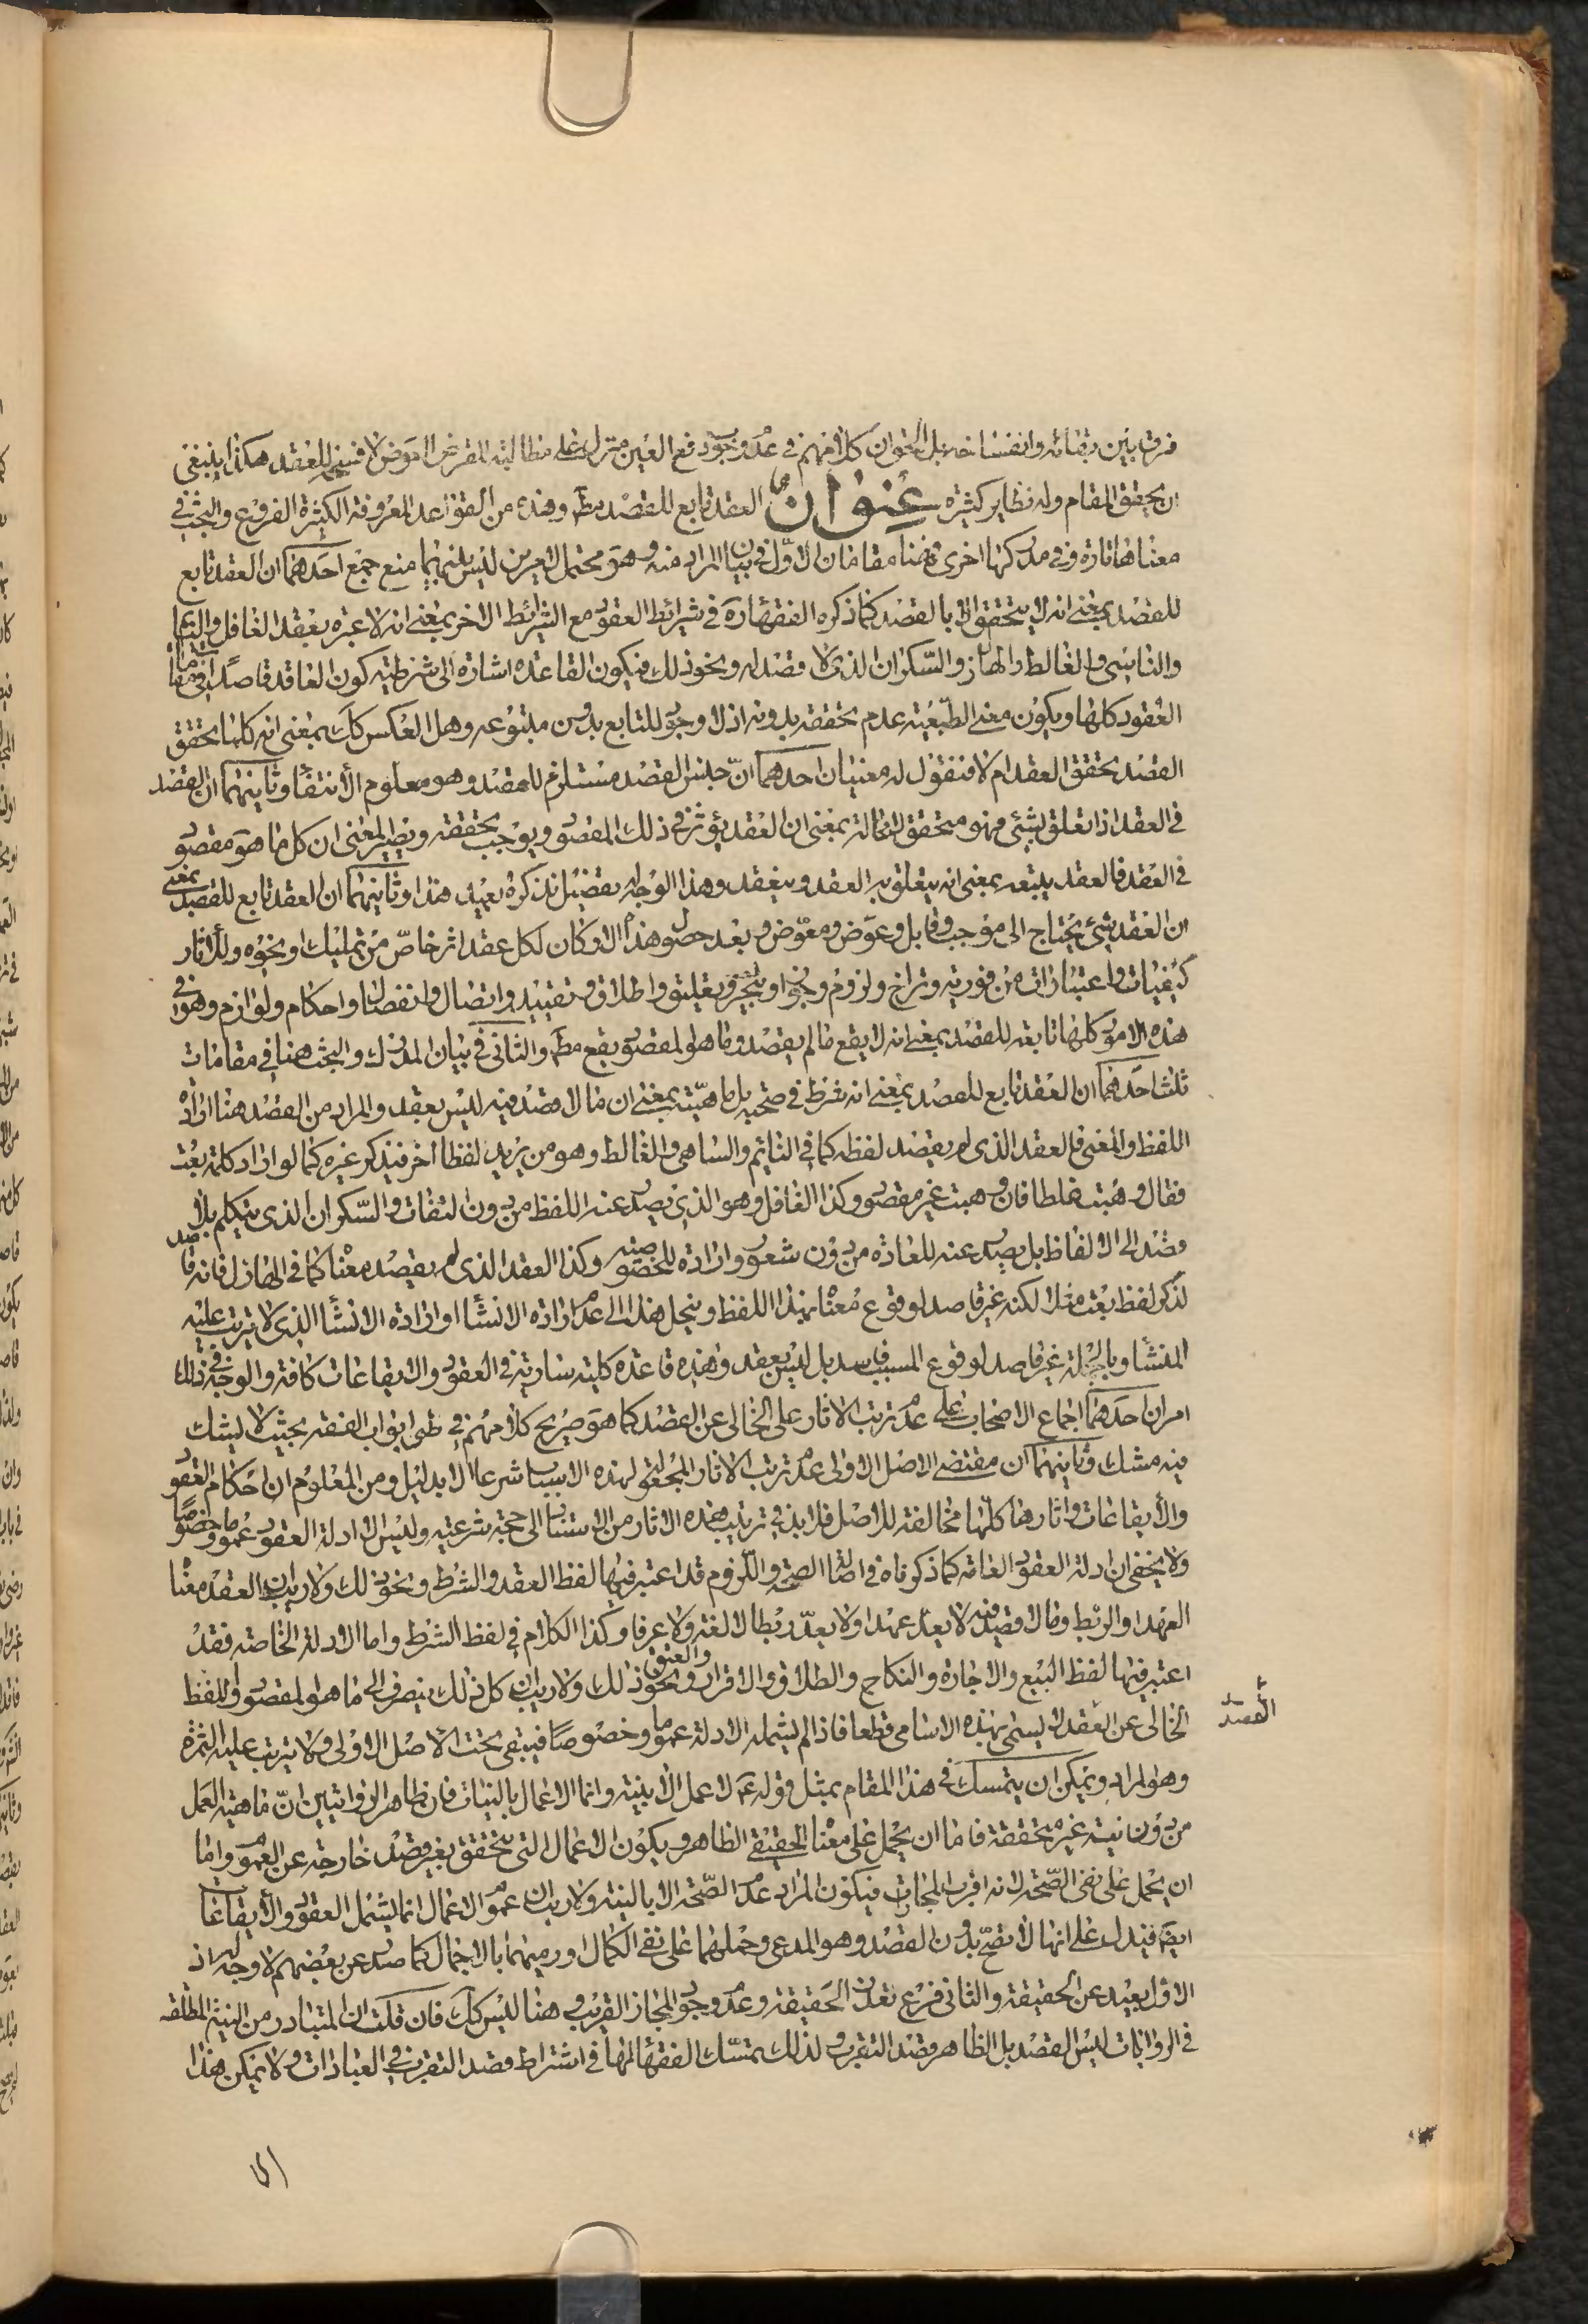 فرق بين بقائه وانفساخه بل الحق ان كلامهم فى عدم وجوب دفع العين منزل على مطالبة المقرض العوض لا فسخ العقد هكذا ينبغى
ان يحقق المقام وله نظاير كثيره عنوان العقد تابع للقصد مط وهذه من القواعد المعروفة الكثيرة الفروع والبحث فى
معناها تارة وفى مدركها اخرى فهنا مقامان الاوّل فى بيان المراد منه وهو محتمل لامرين ليس بينهما منع جمع احدهما ان العقد تابع
للقصد بمعنى انه لا يتحقق الا بالقصد كما ذكره الفقهاء ره فى شرائط العقود مع الشرائط الاخر بمعنى انه لا عبرة بعقد الغافل والنائم
والناسى والغالط والهازل والسّكران الذى لا قصد له ونحو ذلك فيكون القاعده اشارة الى شرطية كون العاقد قاصدا فى مقام
العقود كلها ويكون معنى التّبعيّة عدم تحققه بدونه اذ لا وجود للتابع بدون متبوعه وهل العكس كك بمعنى انه كلما تحقق
القصد تحقق العقد ام لا فنقول له معنيان احدهما انّ جنس القصد مستلزم للعقد وهو معلوم الانتفاء وثانيهما ان القصد
فى العقد اذا تعلق بشئ فهو متحقق لا محالة بمعنى ان العقد يؤثر فى ذلك المقصود ويوجب تحققه ويصير المعنى ان كل ما هو مقصود
فى العقد فالعقد يتبعه بمعنى انه يتعلق به العقد وينعقد وهذا الوجه له تفصيل نذكره بعيد هذا وثانيهما ان العقد تابع للقصد بمعنى
ان العقد شئ يحتاج الى موجب وقابل وعوض ومعوّض وبعد حصول هذه الامور كان لكل عقد اثر خاصّ من تمليك او نحوه وللاثار
كيفيات واعتبارات من فورية وتراخ ولزوم وجواز وتنجيز وتعليق واطلاق وتقييد واتصال وانفصال واحكام ولوازم وهو فى
هذه الامور كلها تابعة للقصد بمعنى انه لا يقع ما لم يقصد وما هو المقصود يقع مط والثانى فى بيان المدرك والبحث هنا فى مقامات
ثلث احدهما ان العقد تابع للقصد بمعنى انه شرط فى صحته بل ماهيّته بمعنى ان ما لا قصد فيه ليس بعقد والمراد من القصد هنا ارادة
اللفظ والمعنى فالعقد الذى لم يقصد لفظه كما فى النائم والساهى والغالط وهو من يريد لفظا اخر فيذكر غيره كما لو اراد كلمة بعت
فقال وهبت غلطا فان وهبت غير مقصود وكذا الغافل وهو الذى يصدر عنه اللفظ من دون التفات والسّكران الذى يتكلم بلا
قصد الى الالفاظ بل يصدر عنه للعادة من دون شعور وارادة للخصوصية وكذا العقد الذى لم يقصد معناه كما فى الهازل فانه قاصد
لذكر لفظ بعت مثلا لكنه غير قاصد لوقوع معناه بهذا اللفظ وينحل هذا الى عدم ارادة الانشاء او ارادة الانشاء الذى لا يترتب عليه
المنشأ وبالجملة غير قاصد لوقوع المسبب فاسد بل ليس بعقد وهذه قاعدة كلية سارية فى العقود والايقاعات كافة والوجه فى ذلك
امران احدهما اجماع الاصحاب على عدم ترتب الاثار على الخالى عن القصد كما هو صريح كلامهم فى طى ابواب الفقه بحيث لا يشك
فيه مشك وثانيهما ان مقتضى الاصل الاولى عدم ترتب الاثار المجعولة لهذه الاسباب شرعا الا بدليل ومن المعلوم ان احكام العقود
والايقاعات واثارها كلّها مخالفة للاصل فلا بد فى ترتيب هذه الاثار من الاستناد الى حجة شرعية وليس الا ادلة العقود عموما وخصوصا
ولا يخفى ان ادلة العقود العامه كما ذكرناه فى اصالة الصحة واللّزوم قد اعتبر فيها لفظ العقد والشرط ونحو ذلك ولا ريب ان العقد معناه
العهد او الربط وما لا قصد فيه لا يعدّ عهدا ولا يعدّ ربطا لا لغة ولا عرفا وكذا الكلام فى لفظ الشرط واما الادلة الخاصة فقد
اعتبر فيها لفظ البيع والاجارة والنكاح والطلاق والاقرار والعتق ونحو ذلك ولا ريب ان كل ذلك ينصرف الى ما هو المقصود واللفظ
الخالى عن القصد لا يسمى بهذه الاسامى قطعا فاذا لم يشمله الادلة عموما وخصوصا فيبقى تحت الاصل الاولى ولا يترتب عليه الثمرة
القصد
وهو المراد ويمكن ان يتمسك فى هذا المقام بمثل قوله ع لا عمل الا بنية وانما الاعمال بالنيات فان ظاهر الروايتين انّ ماهية العمل
من دون نية غير متحققة فاما ان يحمل على معناه الحقيقى الظاهر ويكون الاعمال التى تتحقق بغير قصد خارجة عن العموم واما
ان يحمل على نفى الصّحة لانه اقرب المجازات فيكون المراد عدم الصّحة الا بالنية ولا ريب ان عموم الاعمال انما يشمل العقود والايقاعات
ايضا فيدل على انها لا تصحّ بدون القصد وهو المدعى وحملهما على نفى الكمال او رميهما بالاجمال كما صدر عن بعضهم لا وجه له اذ
الاوّل بعيد عن الحقيقة والثانى فرع تعذر الحقيقة وعدم وجود المجاز القريب وهنا ليس كك فان قلت ان المتبادر من النية المطلقه
فى الروايات ليس القصد بل الظاهر قصد التقرب ولذلك تمسّك الفقهاء بها فى اشتراط قصد التقرب فى العبادات ولا يمكن هذا